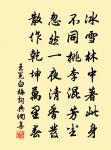 冰雪林中著此身
不同桃李混芳尘
忽然一夜清香发
散作乾坤万里春
王冕白梅诗